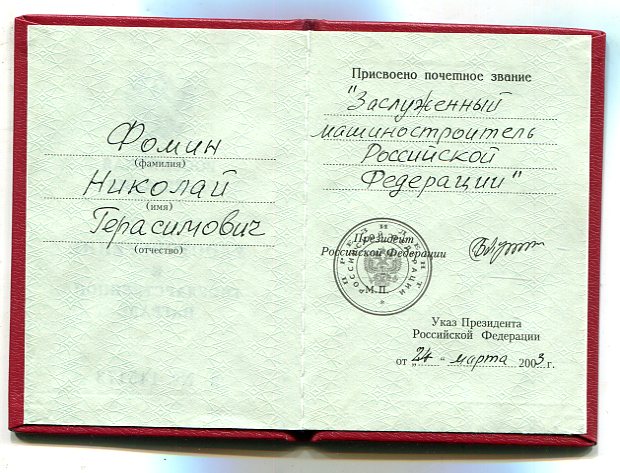 Фомин
(фамилия)
Николай
(имя)
Герасимович
(отчество)
Присвоено почетное звание
"Заслуженный
машиностроитель
Российской
Федерации"
Президент
Российской Федерации
ПРЕЗИДЕНТ
РОССИЙСКОЙ ФЕДЕРАЦИИ
М.П.
Указ Президента
Российской Федерации
от „24 “ марта 2003 г.